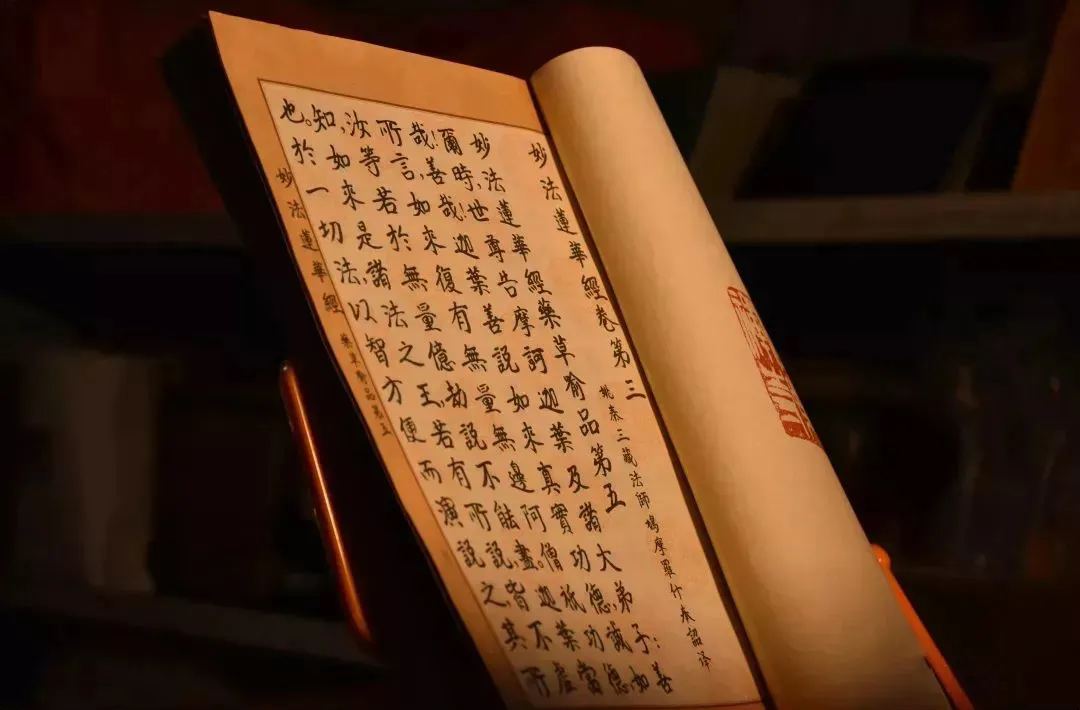 妙法蓮華經卷第三 姚秦三藏法師鳩摩羅什奉詔译
妙法蓮華經藥草喻品第五
爾時,世尊告摩訶迦葉及諸大弟子:善
哉!善哉!迦葉善說如來真實功德,誠如
所言,如來復有無量無邊阿僧祇功德,
汝等若於無量億劫說不能盡。迦葉當
知,如來是諸法之王,若有所說,皆不虛
也。於一切法,以智方便而演說之,其所
妙法蓮華經 藥草喻品第五